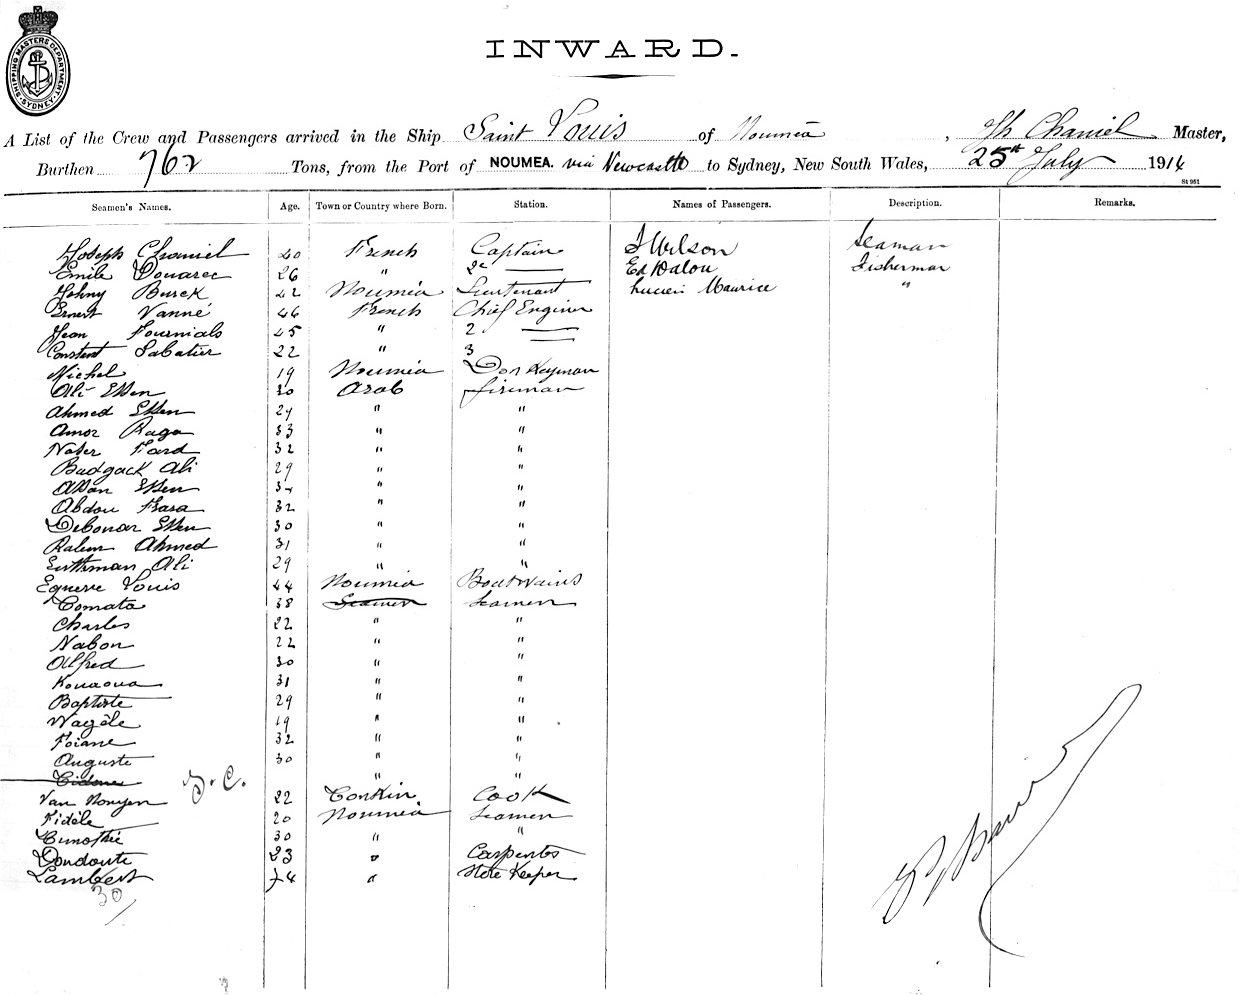 SHIPPING MASTERS DEPARTMENT SYDNEY
INWARD.
A List of the Crew and Passengers arrived in the Ship Saint Louis of Nouméa, Jh Chaniel Master,
Burthen 762 Tons, from the Port of NOUMEA. via Newcastle to Sydney, New South Wales, 25th July 1914
St 951
Seamen's Names. Age. Town or Country where Born. Station. Names of Passengers. Description. Remarks.
Joseph Chaniel 40 French Captain J Wilson Seaman
Emile Douarec 26 " 2e Ed Dalou Fisherman
Johny Burck 42 Nouméa Lieutenant Lucien Maurice "
Ernest Vanné 46 French Chief Engineer
Jean Fournials 45 " 2
Constant Sabatier 22 " 3
Michel 19 Nouméa Don Keyman
Ali Essen 30 Arab fireman
Ahmed Essen 24 " "
Amor Raga 33 " "
Nater Fard 32 " "
Budgack Ali 29 " "
Assan Essen 34 " "
Abdou Fara 32 " "
Debonar Essen 30 " "
Ralem Ahmed 31 " "
Ali 29 " "
Louis 44 Nouméa Boatswains
Comata 38 Seamen Seamen
Charles 22 " "
Nabon 22 " "
Alfred 30 " "
Kouaoua 31 " "
Baptiste 29 " "
Wagèle 19 " "
Foiane 32 " "
Auguste 30 " "
" "
Van Nouyen 22 Tonkin Cook
Fidèle 20 Nouméa Seamen
Timothé 30 " "
Doudoute 23 " Carpenter
Lambert 74 " Store Keeper
30